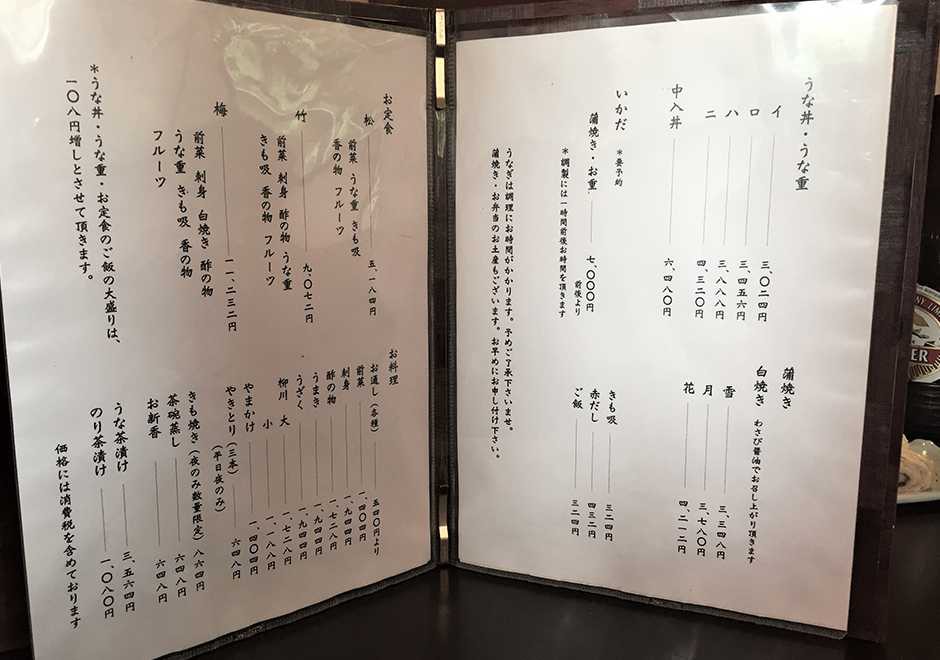 うな丼・うな重
イ 三、〇二四円
ロ 三、四五六円
ハ 三、八八八円
ニ 四、三二〇円
中入丼 六、四八〇円
いかだ *要予約
蒲焼き・お重 七、〇〇〇円前後より
*調製には一時間前後お時間を頂きます
うなぎは調理にお時間がかかります。予めご了承下さいませ。
蒲焼き・お弁当のお土産もございます。お早めにお申し付け下さい。
蒲焼き
白焼き わさび醤油でお召し上がり頂きます
雪 三、三四八円
月 三、七八〇円
花 四、二一二円
きも吸 三二四円
赤だし 四三二円
ご飯 三二四円
お定食
松 五、一八四円
前菜 うな重 きも吸
香の物 フルーツ
竹 九、〇七二円
前菜 刺身 酢の物 うな重
きも吸 香の物 フルーツ
梅 一一、二三二円
前菜 刺身 白焼き 酢の物
うな重 きも吸 香の物
フルーツ
*うな丼・うな重・お定食のご飯の大盛りは、
一〇八円増しとさせて頂きます。
お料理
お通し(各種) 五四〇円より
前菜 一、四〇四円
刺身 一、九四四円
酢の物 一、七二八円
うまき 一、九四四円
うざく 一、九四四円
柳川 大 一、七二八円
小 一、一八八円
やまかけ 一、四〇四円
やきとり(三本) 六四八円
(平日夜のみ)
きも焼き(夜のみ数量限定) 八六四円
茶碗蒸し 六四八円
お新香 六四八円
うな茶漬け 三、五六四円
のり茶漬け 一、〇八〇円
価格には消費税を含めております